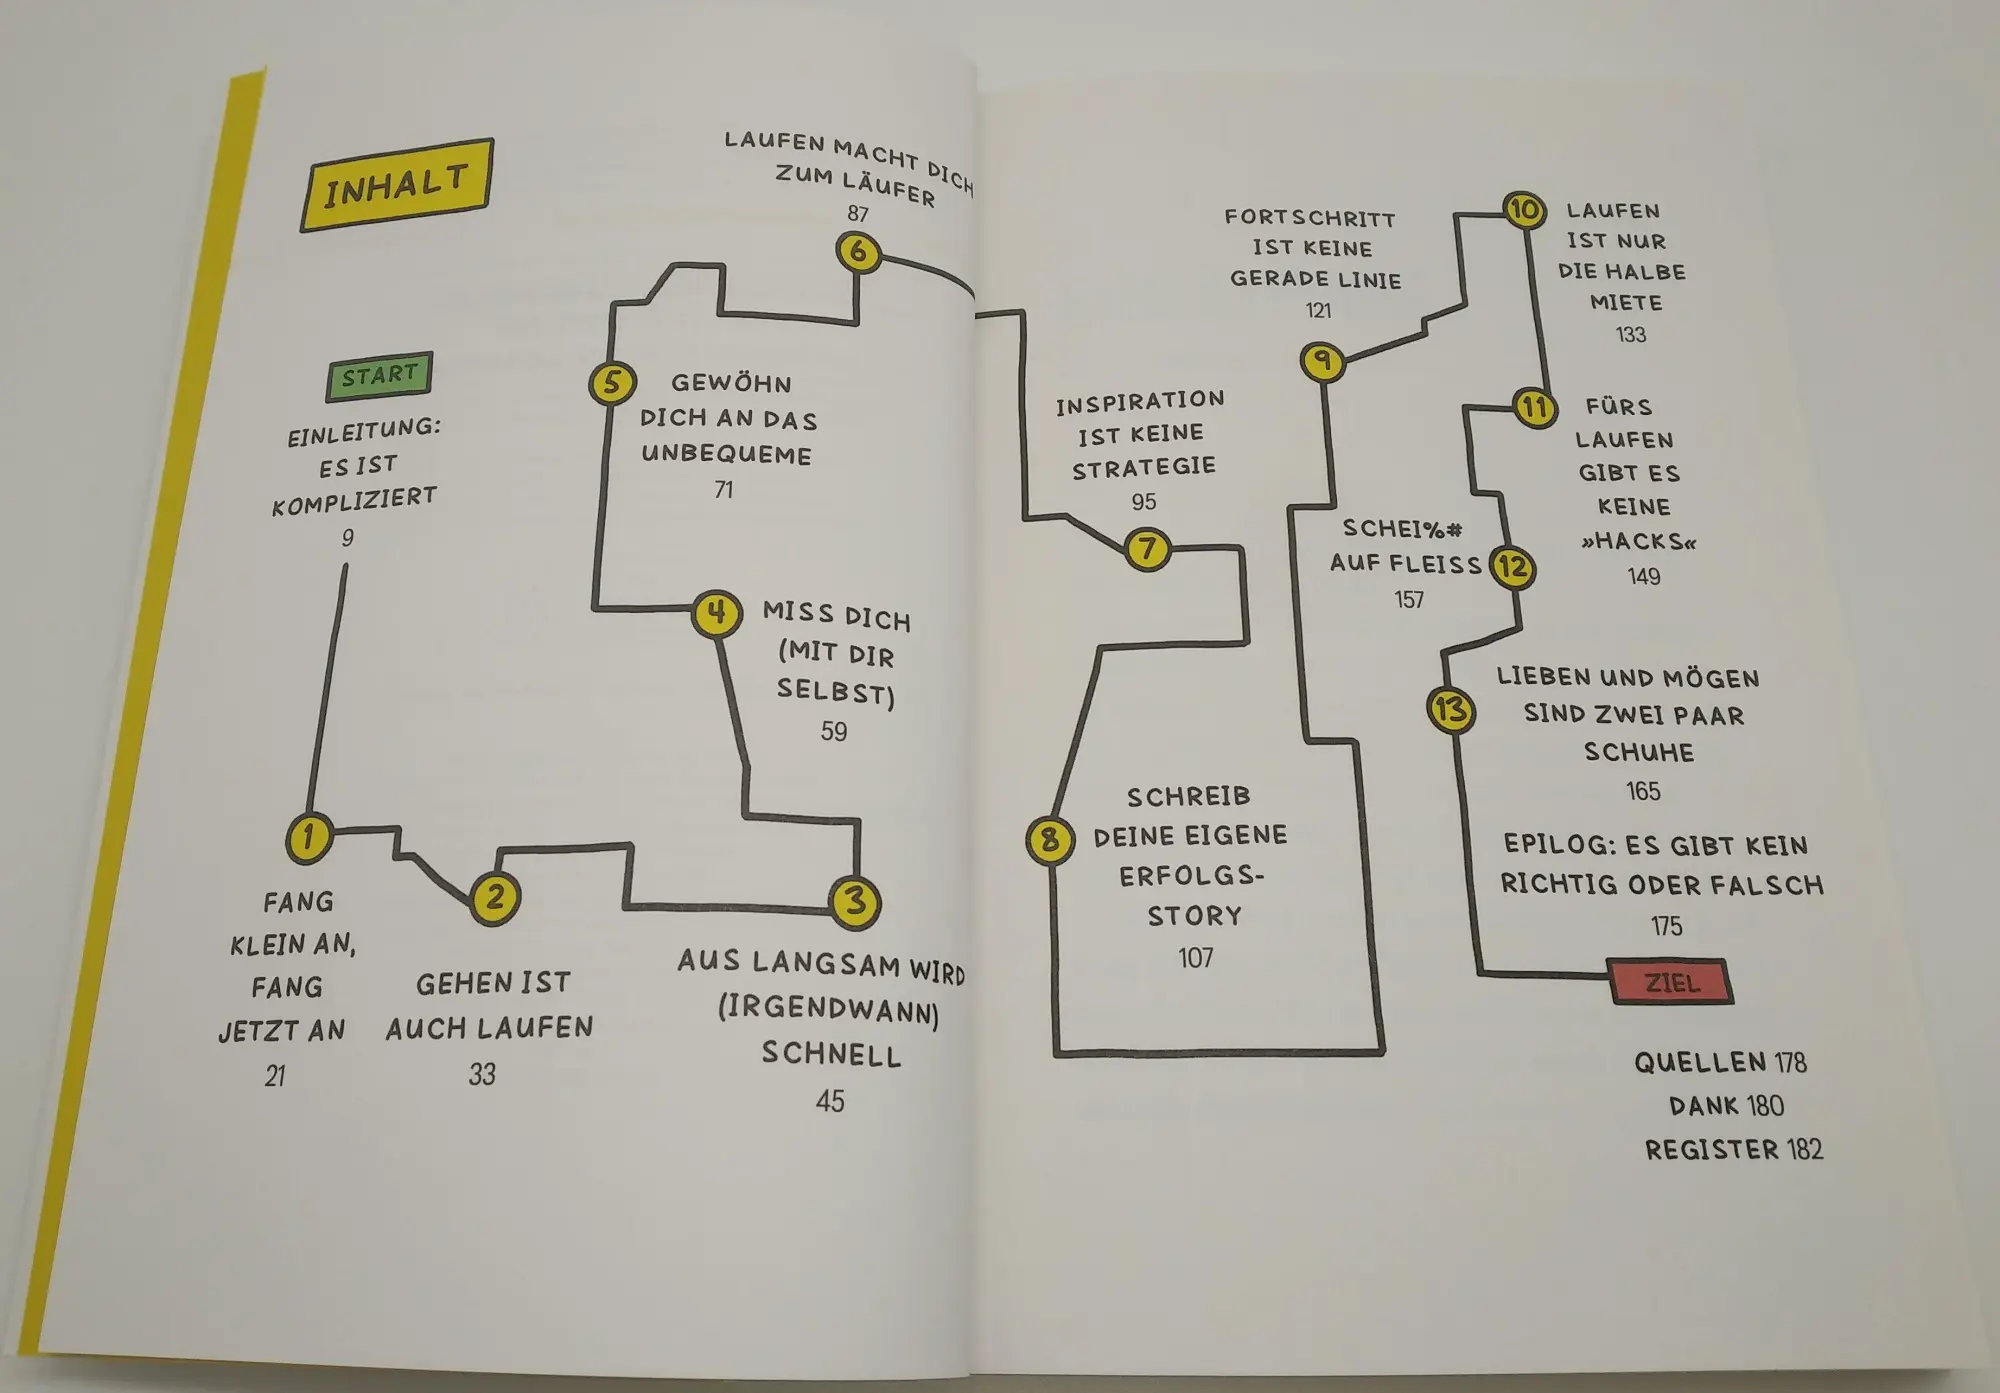 INHALT
START
EINLEITUNG:
ES IST
KOMPLIZIERT
9
1
FANG
KLEIN AN,
FANG
JETZT AN
21
2
GEHEN IST
AUCH LAUFEN
33
3
AUS LANGSAM WIRD
(IRGENDWANN)
SCHNELL
45
4
MISS DICH
(MIT DIR
SELBST)
59
5
GEWÖHN
DICH AN DAS
UNBEQUEME
71
LAUFEN MACHT DICH
ZUM LÄUFER
87
6
INSPIRATION
IST KEINE
STRATEGIE
95
7
8
SCHREIB
DEINE EIGENE
ERFOLGS-
STORY
107
FORTSCHRITT
IST KEINE
GERADE LINIE
121
9
10
LAUFEN
IST NUR
DIE HALBE
MIETE
133
11
FÜRS
LAUFEN
GIBT ES
KEINE
»HACKS«
149
SCHEI%#
AUF FLEISS
157
12
13
LIEBEN UND MÖGEN
SIND ZWEI PAAR
SCHUHE
165
EPILOG: ES GIBT KEIN
RICHTIG ODER FALSCH
175
ZIEL
QUELLEN 178
DANK 180
REGISTER 182